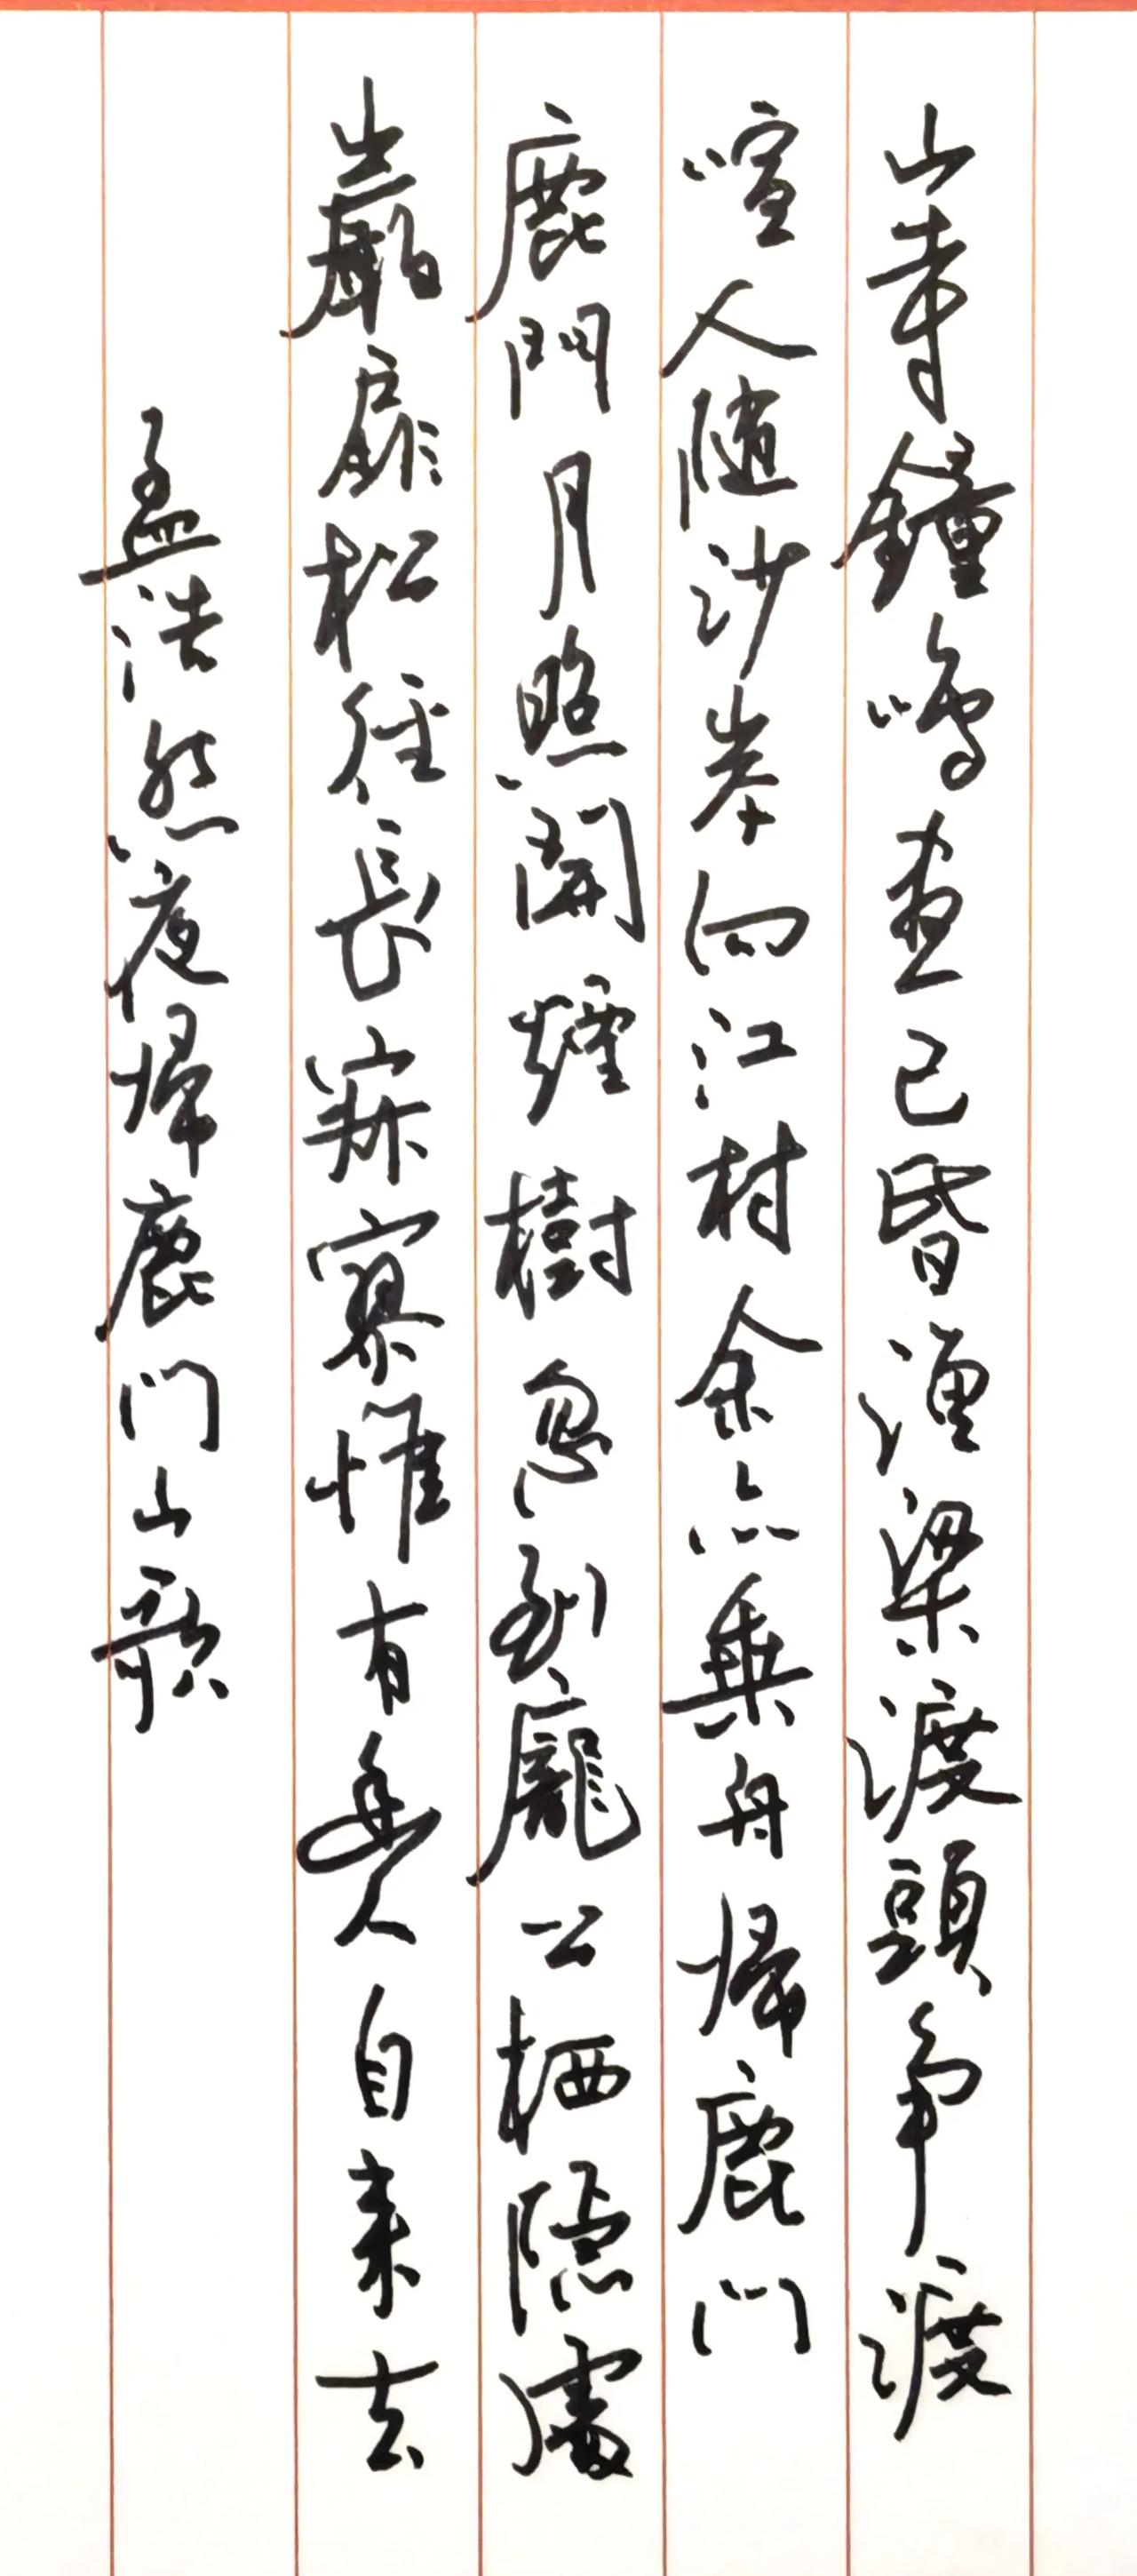 山寺鐘鳴晝已昏漁梁渡頭爭渡
喧人随沙岸向江村余亦乗舟歸鹿門
鹿門月照開煙樹忽到龐公栖隱處
巖扉松徑長寂寥惟有幽人自来去
孟浩然夜歸鹿门山歌